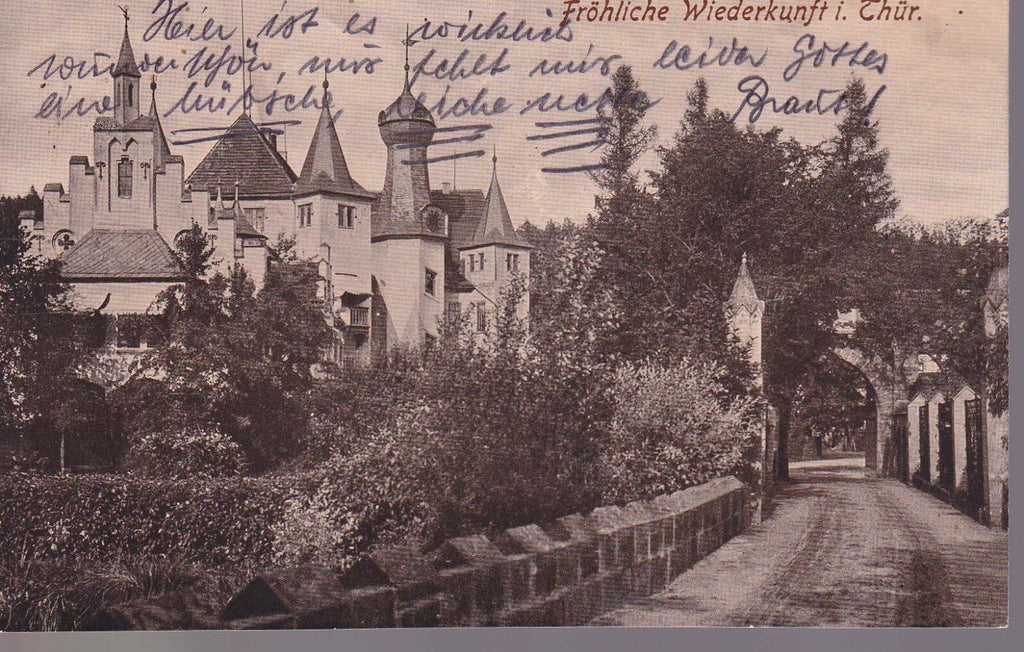 Fröhliche Wiederkunft i. Thür.
Hier ist es wirklich
wunderschön, nur fehlt mir leider Gottes
eine hübsche, reiche nette Braut!